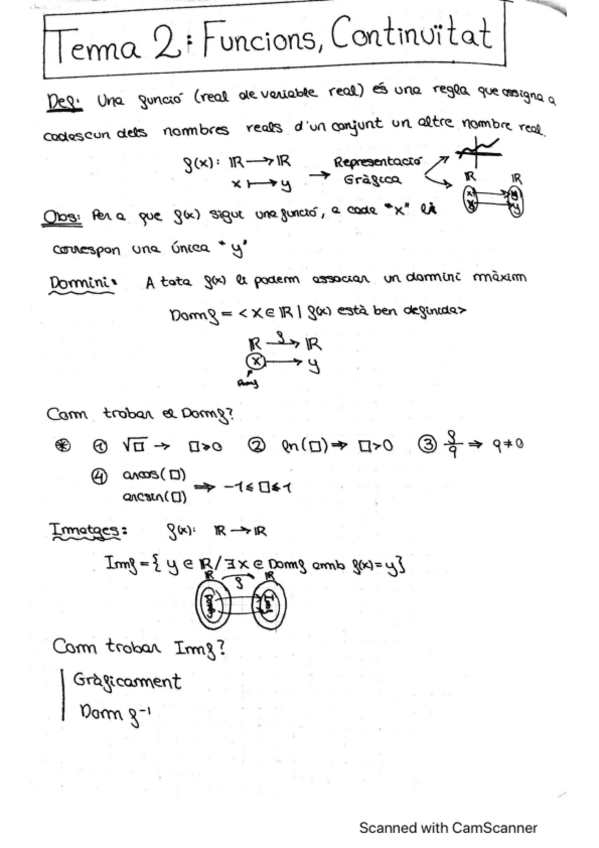 Tema 2: Funcions, Continuïtat
Def: Una funció (real de variable real) és una regla que assigna a
cadascun dels nombres reals d'un conjunt un altre nombre real.
f(x): ℝ → ℝ
x ↦ y
→ Representació Gràfica
ℝ ℝ
x y
x y
Obs: Per a que f(x) sigui una funció, a cada "x" li
correspon una única "y"
Domini: A tota f(x) li podem associar un domini màxim
Dom f = < x ∈ ℝ | f(x) està ben definida >
ℝ —f→ ℝ
x → y
Dom f
Com trobar el Dom f?
⊛ ① √□ → □ ≥ 0 ② ln(□) ⇒ □ > 0 ③ f/g ⇒ g ≠ 0
④ arccos(□)
arcsin(□) ⇒ -1 ≤ □ ≤ 1
Imatges: f(x): ℝ → ℝ
Im f = { y ∈ ℝ / ∃ x ∈ Dom f amb f(x) = y }
ℝ f ℝ
Dom f Im f
Com trobar Im f?
Gràficament
Dom f⁻¹
Scanned with CamScanner